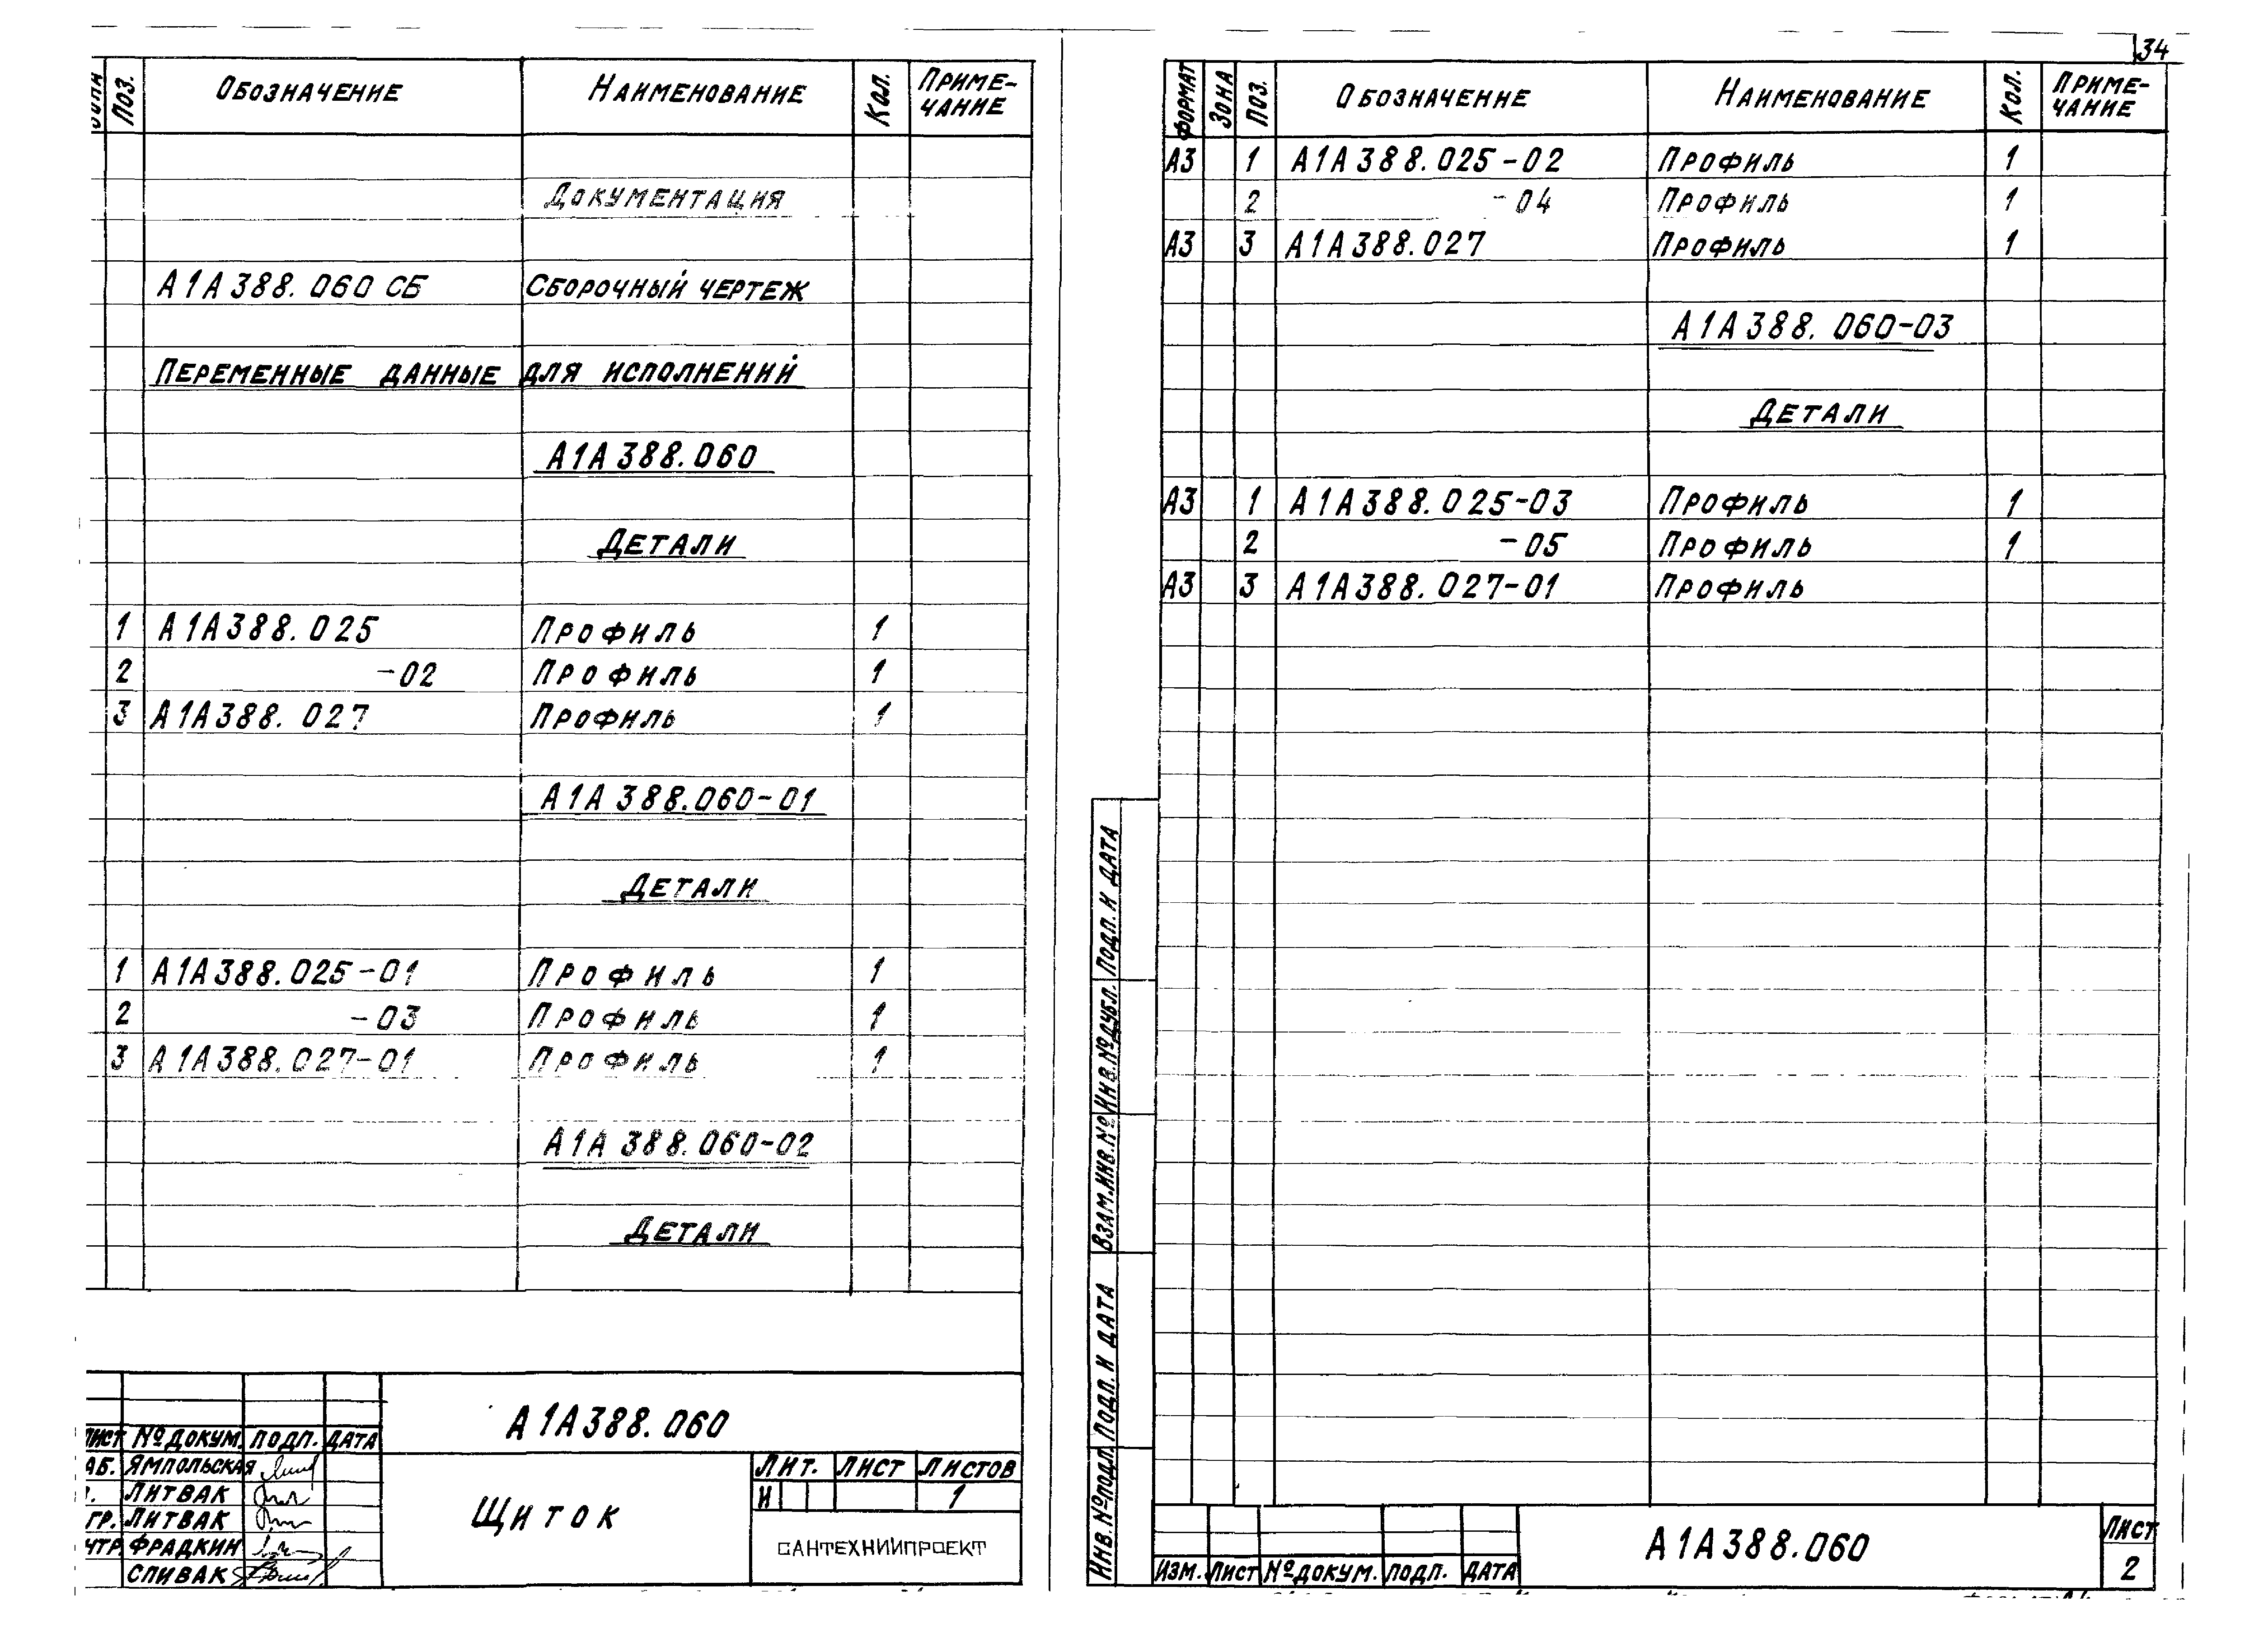 ЗОНА ПОЗ. ОБОЗНАЧЕНИЕ НАИМЕНОВАНИЕ КОЛ. ПРИМЕ-
ЧАНИЕ
ДОКУМЕНТАЦИЯ
А1А388.060 СБ СБОРОЧНЫЙ ЧЕРТЕЖ
ПЕРЕМЕННЫЕ ДАННЫЕ ДЛЯ ИСПОЛНЕНИЙ
А1А388.060
ДЕТАЛИ
1 А1А388.025 ПРОФИЛЬ 1
2 -02 ПРОФИЛЬ 1
3 А1А388.027 ПРОФИЛЬ 1
А1А388.060-01
ДЕТАЛИ
1 А1А388.025-01 ПРОФИЛЬ 1
2 -03 ПРОФИЛЬ 1
3 А1А388.027-01 ПРОФИЛЬ 1
А1А388.060-02
ДЕТАЛИ
А1А388.060
ЛИСТ №ДОКУМ. ПОДП. ДАТА
АБ. ЯМПОЛЬСКАЯ
ЛИТВАК
ГР. ЛИТВАК
НТР ФРАДКИН
СПИВАК
ЩИТОК
ЛИТ. ЛИСТ ЛИСТОВ
И 1
САНТЕХНИИПРОЕКТ
34
ФОРМАТ ЗОНА ПОЗ. ОБОЗНАЧЕНИЕ НАИМЕНОВАНИЕ КОЛ. ПРИМЕ-
ЧАНИЕ
А3 1 А1А388.025-02 ПРОФИЛЬ 1
2 -04 ПРОФИЛЬ 1
А3 3 А1А388.027 ПРОФИЛЬ 1
А1А388.060-03
ДЕТАЛИ
А3 1 А1А388.025-03 ПРОФИЛЬ 1
2 -05 ПРОФИЛЬ 1
А3 3 А1А388.027-01 ПРОФИЛЬ
ПОДП. И ДАТА
ИНВ.№ДУБЛ.
ВЗАМ.ИНВ.№
ПОДП. И ДАТА
ИНВ.№ПОДЛ.
ИЗМ. ЛИСТ №ДОКУМ. ПОДП. ДАТА
А1А388.060
ЛИСТ
2